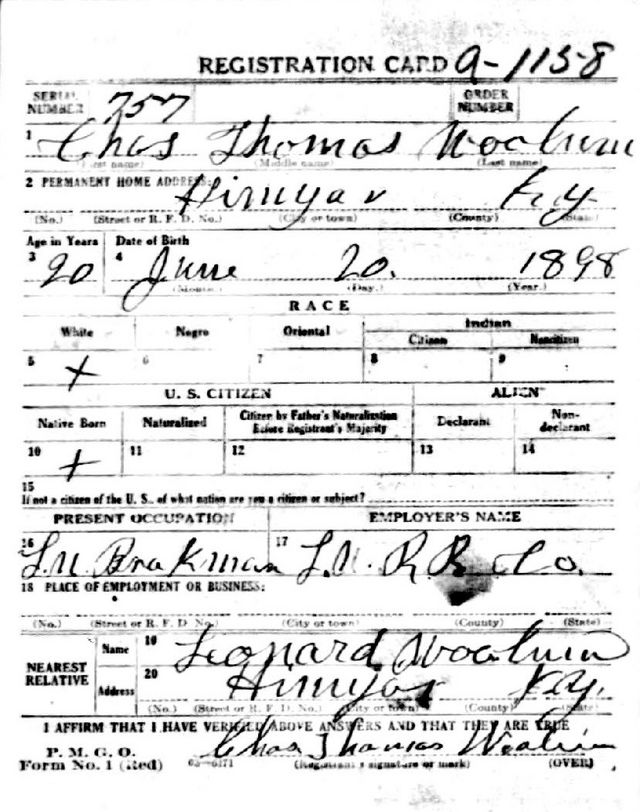 REGISTRATION CARD A-1158
SERIAL NUMBER 757 ORDER NUMBER
1 Chas Thomas Woolum
(First name) (Middle name) (Last name)
2 PERMANENT HOME ADDRESS:
Himyar Ky
(No.) (Street or R. F. D. No.) (City or town) (County) (State)
Age in Years Date of Birth
3 20 4 June 20. 1898
(Month.) (Day.) (Year.)
RACE
White Negro Oriental Indian
Citizen Noncitizen
5 X 6 7 8 9
U. S. CITIZEN ALIEN
Native Born Naturalized Citizen by Father's Naturalization Before Registrant's Majority Declarant Non-declarant
10 X 11 12 13 14
15
If not a citizen of the U. S., of what nation are you a citizen or subject?
PRESENT OCCUPATION EMPLOYER'S NAME
16 L.N Brakman 17 L.N. R.R Co.
18 PLACE OF EMPLOYMENT OR BUSINESS:
(No.) (Street or R. F. D. No.) (City or town) (County) (State)
NEAREST RELATIVE Name 19 Leonard Woolum
Address 20 Himyar Ky.
(No.) (Street or R. F. D. No.) (City or town) (County) (State)
I AFFIRM THAT I HAVE VERIFIED ABOVE ANSWERS AND THAT THEY ARE TRUE
P. M. G. O.
Form No. 1 (Red) 03-6171 Chas Thomas Woolum
(Registrant's signature or mark) (OVER)